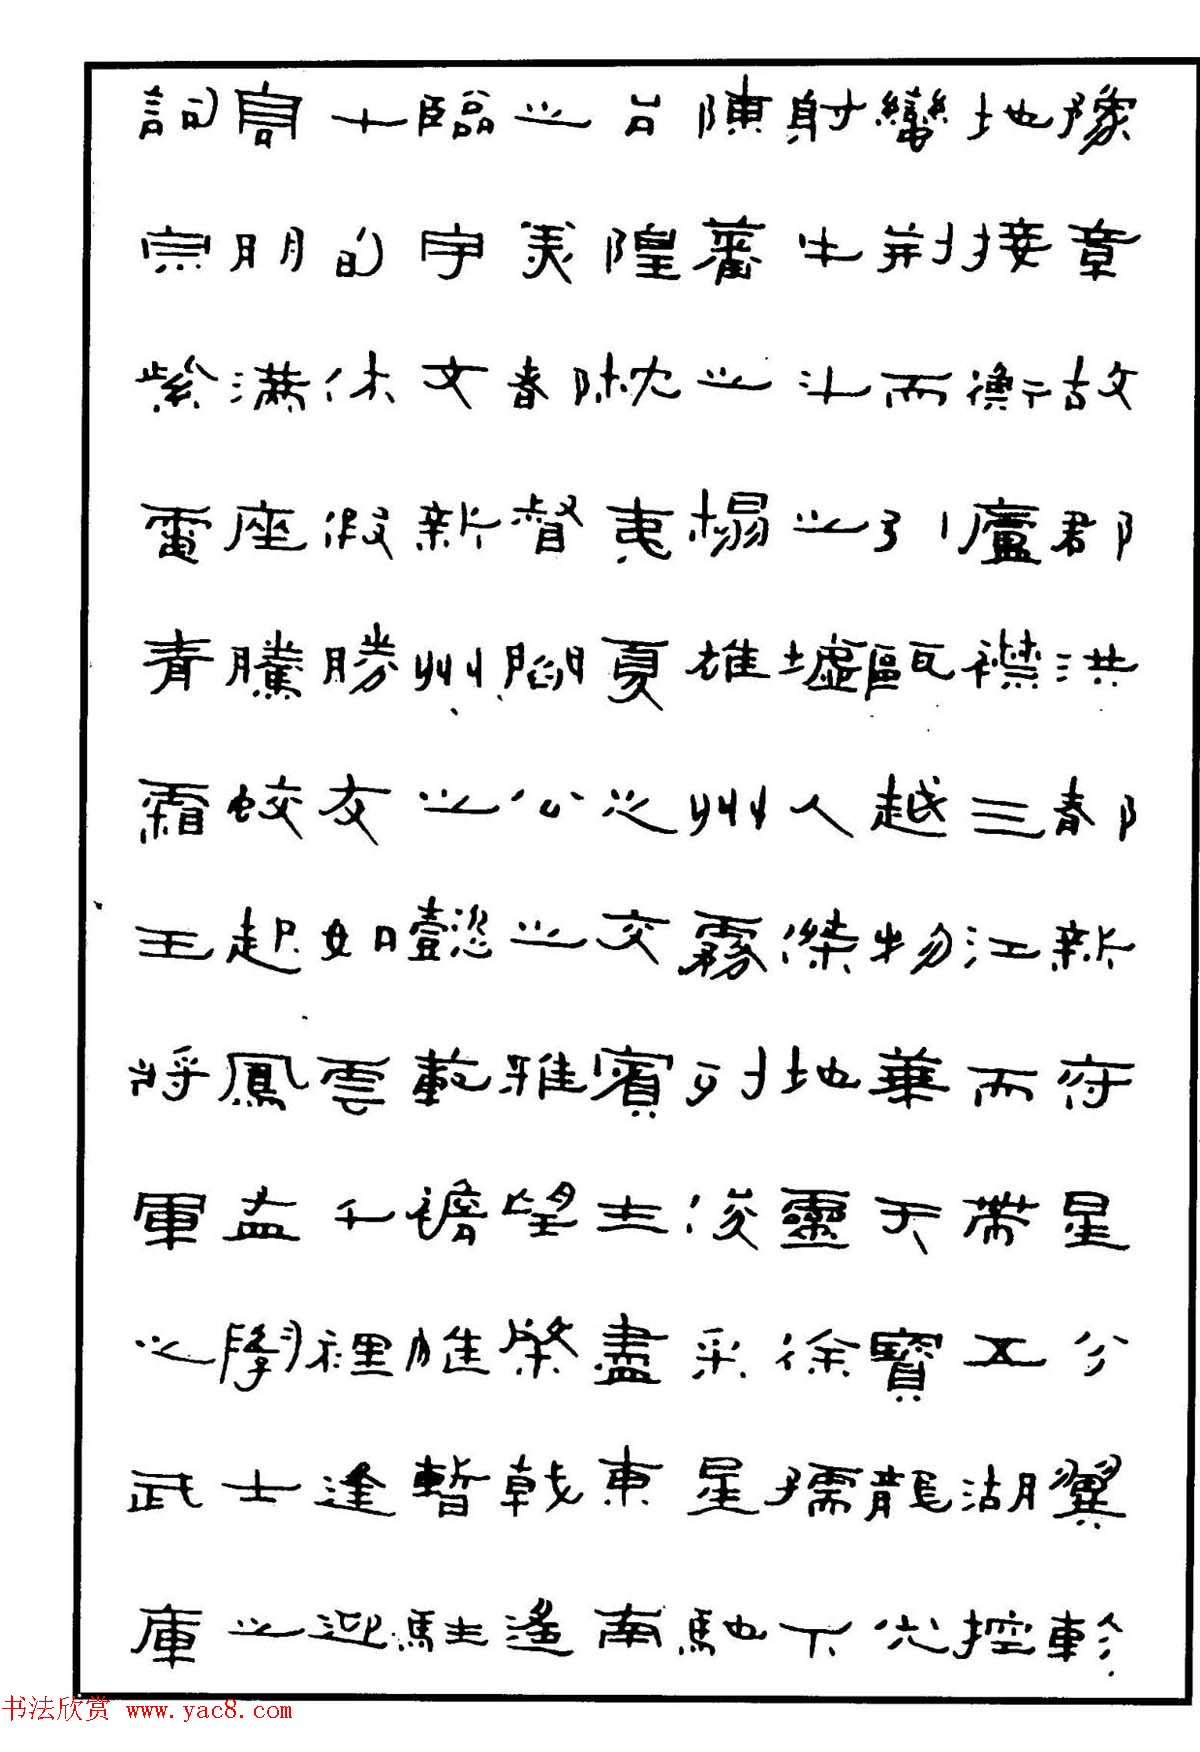 豫章故郡洪都新府星分翼軫
地接衡廬襟三江而帶五湖控
蠻荆而引甌越物華天寶龍光
射牛斗之墟人傑地靈徐孺下
陳蕃之榻雄州霧列俊采星馳
台隍枕夷夏之交賓主盡東南
之美都督閻公之雅望棨戟遙
臨宇文新州之懿範襜帷暫駐
十旬休假勝友如雲千里逢迎
高朋滿座騰蛟起鳳孟學士之
詞宗紫電青霜王將軍之武庫
书法欣赏 www.yac8.com